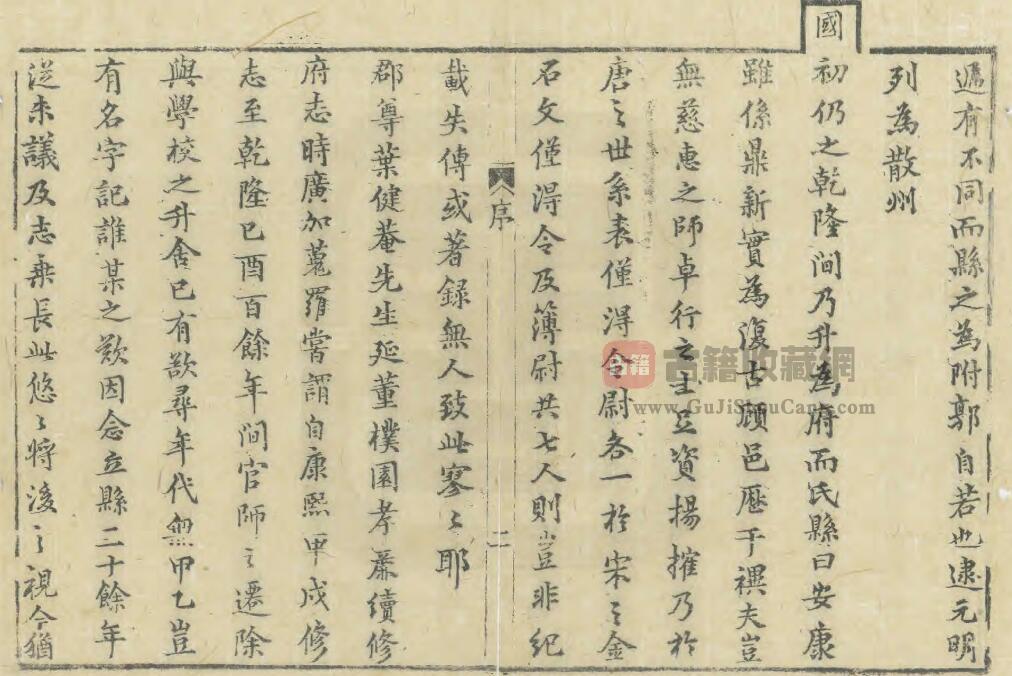 遞有不同而縣之為附郭自若也逮元明
列為散州
國
初仍之乾隆間乃升為府而氏縣曰安康
雖係鼎新實為復古顧邑歷千禩夫豈
無慈惠之師卓行之士足資揚搉乃於
唐之世系表僅得令尉各一於宋之金
石文僅得令及簿尉共七人則豈非紀
序
二
載失傳或著錄無人致此寥〻耶
郡尊葉健菴先生延董樸園孝廉續修
府志時廣加蒐羅嘗謂自康熙甲戌修
志至乾隆己酉百餘年間官師之遷除
與學校之升舍已有歎尋年代無甲乙豈
有名字記誰某之歎因念立縣二十餘年
從未議及志乘長此悠〻將後之視今猶
古籍
古籍收藏網
www.GuJiShouCang.com